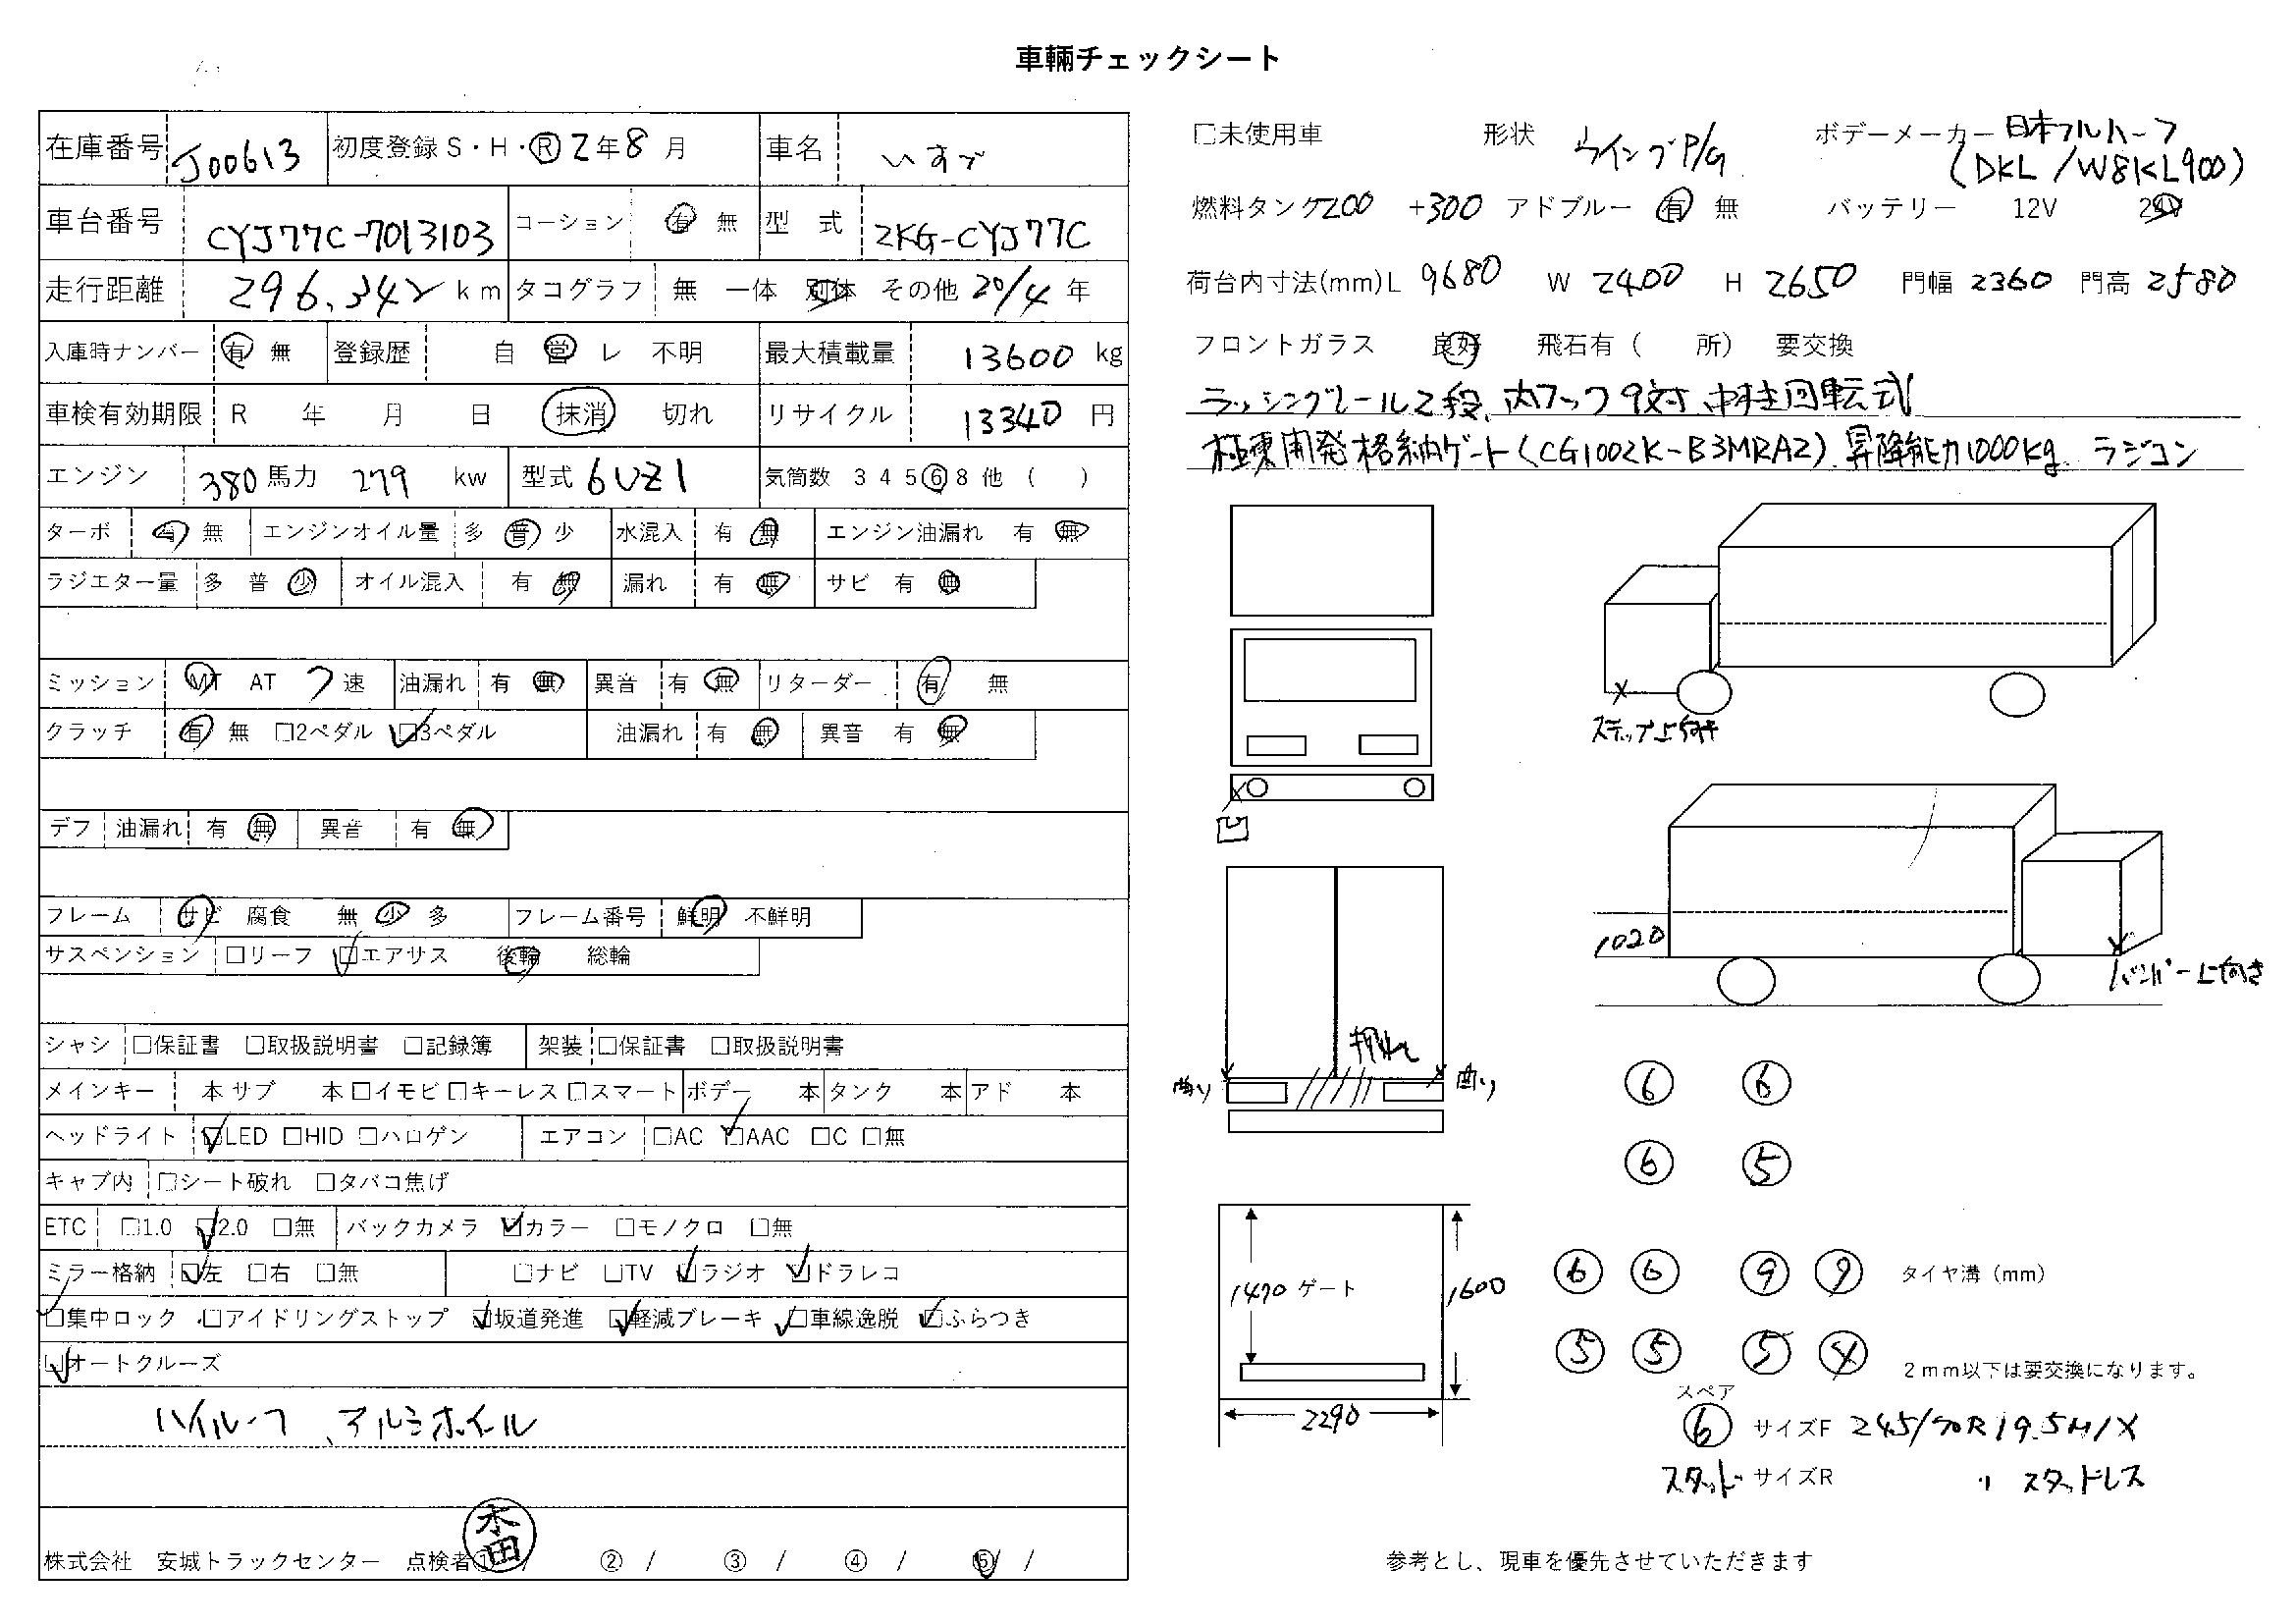 車輛チェックシート
在庫番号 J00613 初度登録 S・H・R 2年8月 車名 いすゞ
車台番号 CYJ77C-7013103 コーション 有 無 型式 2KG-CYJ77C
走行距離 296,342 km タコグラフ 無 一体 別体 その他 20/4 年
入庫時ナンバー 有 無 登録歴 自 営 レ 不明 最大積載量 13600 kg
車検有効期限 R 年 月 日 抹消 切れ リサイクル 13340 円
エンジン 380馬力 279 kw 型式 6UZ1 気筒数 3 4 5 6 8 他 ( )
ターボ 有 無 エンジンオイル量 多 普 少 水混入 有 無 エンジン油漏れ 有 無
ラジエター量 多 普 少 オイル混入 有 無 漏れ 有 無 サビ 有 無
ミッション MT AT 7速 油漏れ 有 無 異音 有 無 リターダー 有 無
クラッチ 有 無 □2ペダル □3ペダル 油漏れ 有 無 異音 有 無
デフ 油漏れ 有 無 異音 有 無
フレーム サビ 腐食 無 少 多 フレーム番号 鮮明 不鮮明
サスペンション □リーフ □エアサス 後輪 総輪
シャシ □保証書 □取扱説明書 □記録簿 架装 □保証書 □取扱説明書
メインキー 本 サブ 本 □イモビ □キーレス □スマート ボデー 本 タンク 本 アド 本
ヘッドライト □LED □HID □ハロゲン エアコン □AC □AAC □C □無
キャブ内 □シート破れ □タバコ焦げ
ETC □1.0 □2.0 □無 バックカメラ □カラー □モノクロ □無
ミラー格納 □左 □右 □無 □ナビ □TV □ラジオ □ドラレコ
□集中ロック □アイドリングストップ □坂道発進 □軽減ブレーキ □車線逸脱 □ふらつき
□オートクルーズ
ハイルーフ、アルミホイール
株式会社 安城トラックセンター 点検者① 木田 / ② / ③ / ④ / ⑤ /
□未使用車 形状 ウイングP/G ボデーメーカー 日本フルハーフ
(DKL/W8KL900)
燃料タンク 200 +300 アドブルー 有 無 バッテリー 12V 24V
荷台内寸法(mm) L 9680 W 2400 H 2650 門幅 2360 門高 2580
フロントガラス 良好 飛石有 ( 所) 要交換
ラッシングレール2段、内フック9対、中柱回転式
極東開発格納ゲート(CG1002K-B3MRA2) 昇降能力1000kg ラジコン
ステップ上向き
凹
1020
バンパー上向き
押サレ
曲り 曲り
⑥ ⑥
⑥ ⑤
1470 ゲート 1600
2290
⑥ ⑥ ⑨ ⑨ タイヤ溝(mm)
⑤ ⑤ ⑤ ④ 2mm以下は要交換になります。
スペア
⑥ サイズF 245/70R19.5 MIX
スタッド サイズR 〃 スタッドレス
参考とし、現車を優先させていただきます